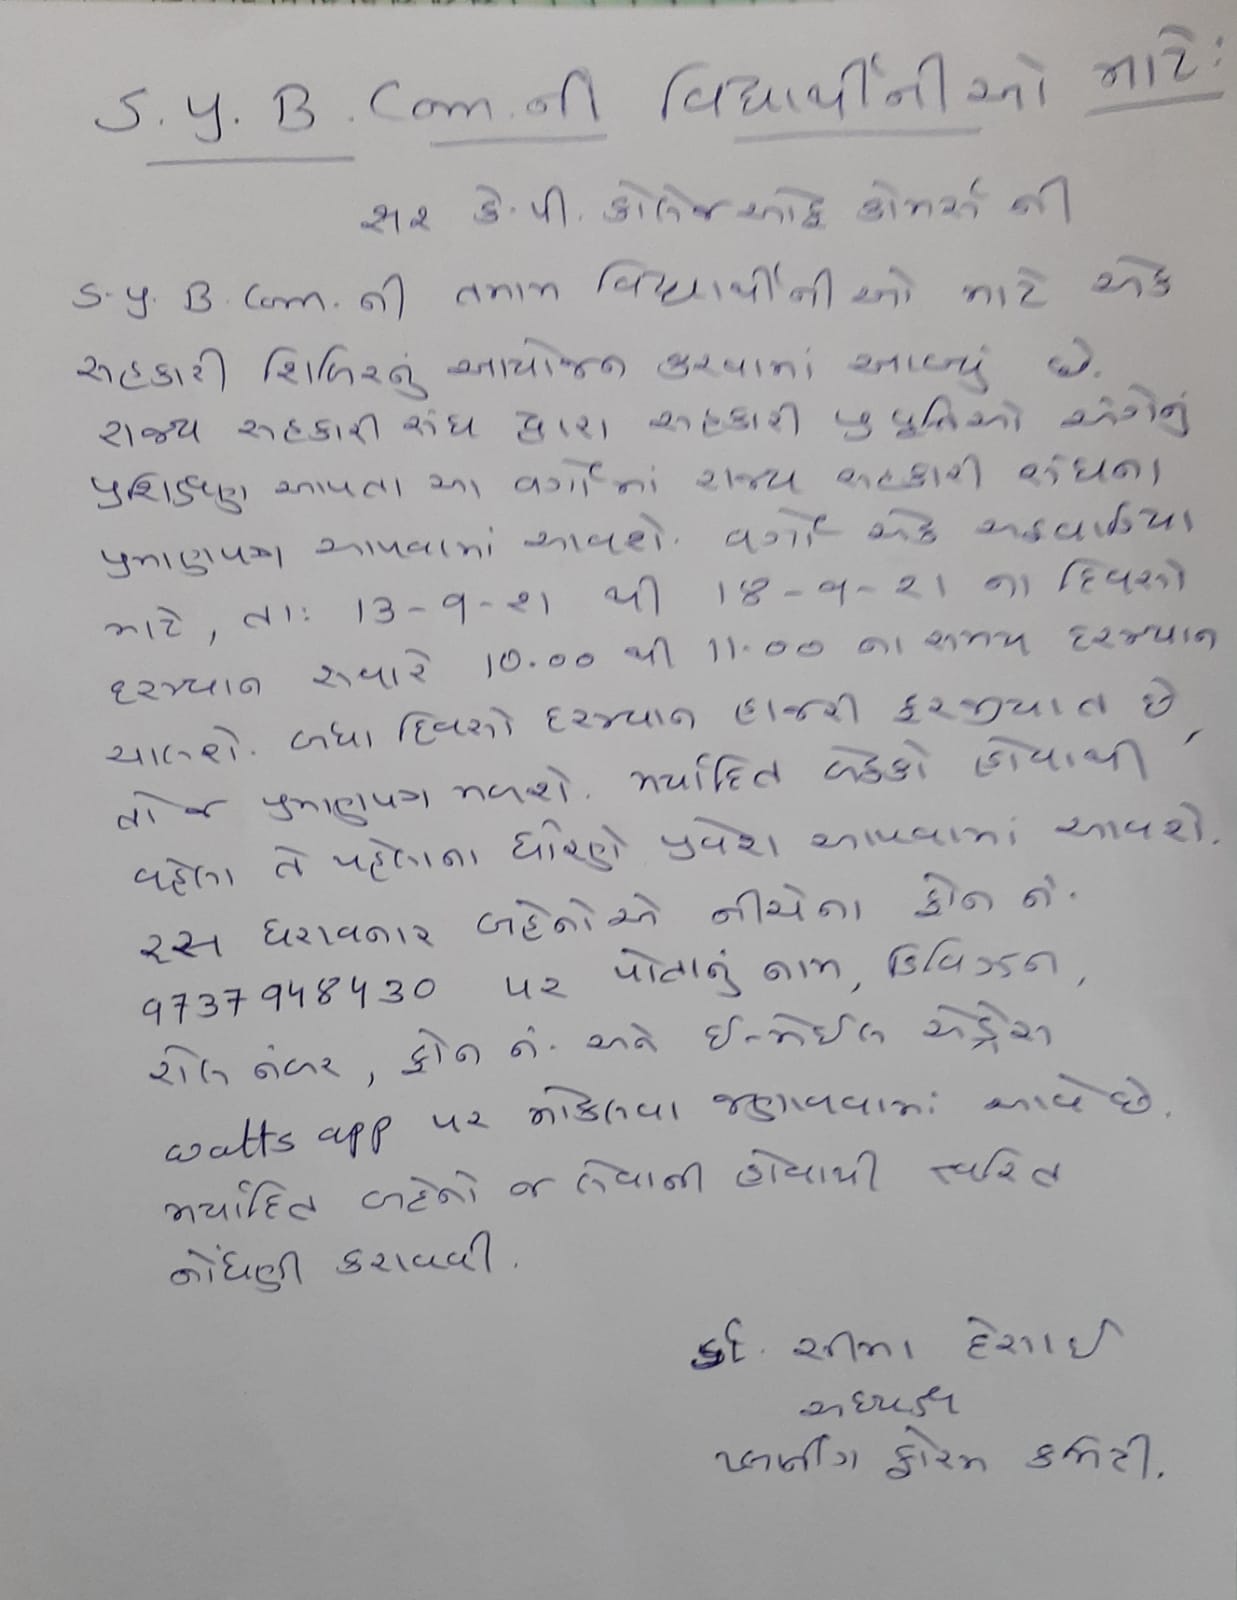 S.Y. B.Com.ની વિદ્યાર્થીનીઓ માટે:
સર કે.પી. કોલેજ ઓફ કોમર્સ ની
S.Y. B.Com. ની તમામ વિદ્યાર્થીનીઓ માટે એક
સહકારી શિબિરનું આયોજન કરવામાં આવ્યું છે.
રાજ્ય સહકારી સંઘ દ્વારા સહકારી પ્રવૃત્તિઓ અંગેનું
પ્રશિક્ષણ આપતા આ વર્ગોમાં રાજ્ય સહકારી સંઘના
પ્રમાણપત્ર આપવામાં આવશે. વર્ગો એક અઠવાડિયા
માટે, તા: 13-9-21 થી 18-9-21 ના દિવસો
દરમ્યાન સવારે 10.00 થી 11.00 ના સમય દરમ્યાન
ચાલશે. બધા દિવસો દરમ્યાન હાજરી ફરજીયાત છે,
તો જ પ્રમાણપત્ર મળશે. મર્યાદિત બેઠકો હોવાથી
વહેલા તે પહેલાના ધોરણે પ્રવેશ આપવામાં આવશે.
રસ ધરાવનાર બહેનોએ નીચેના ફોન નં.
9737948430 પર પોતાનું નામ, ડિવિઝન,
રોલ નંબર, ફોન નં. અને ઈ-મેઈલ એડ્રેસ
watts app પર મોકલવા જણાવવામાં આવે છે.
મર્યાદિત બહેનો જ લેવાની હોવાથી ત્વરિત
નોંધણી કરાવવી.
ડૉ. સીમા દેસાઈ
અધ્યક્ષ
પ્લાનીંગ ફોરમ કમિટી.